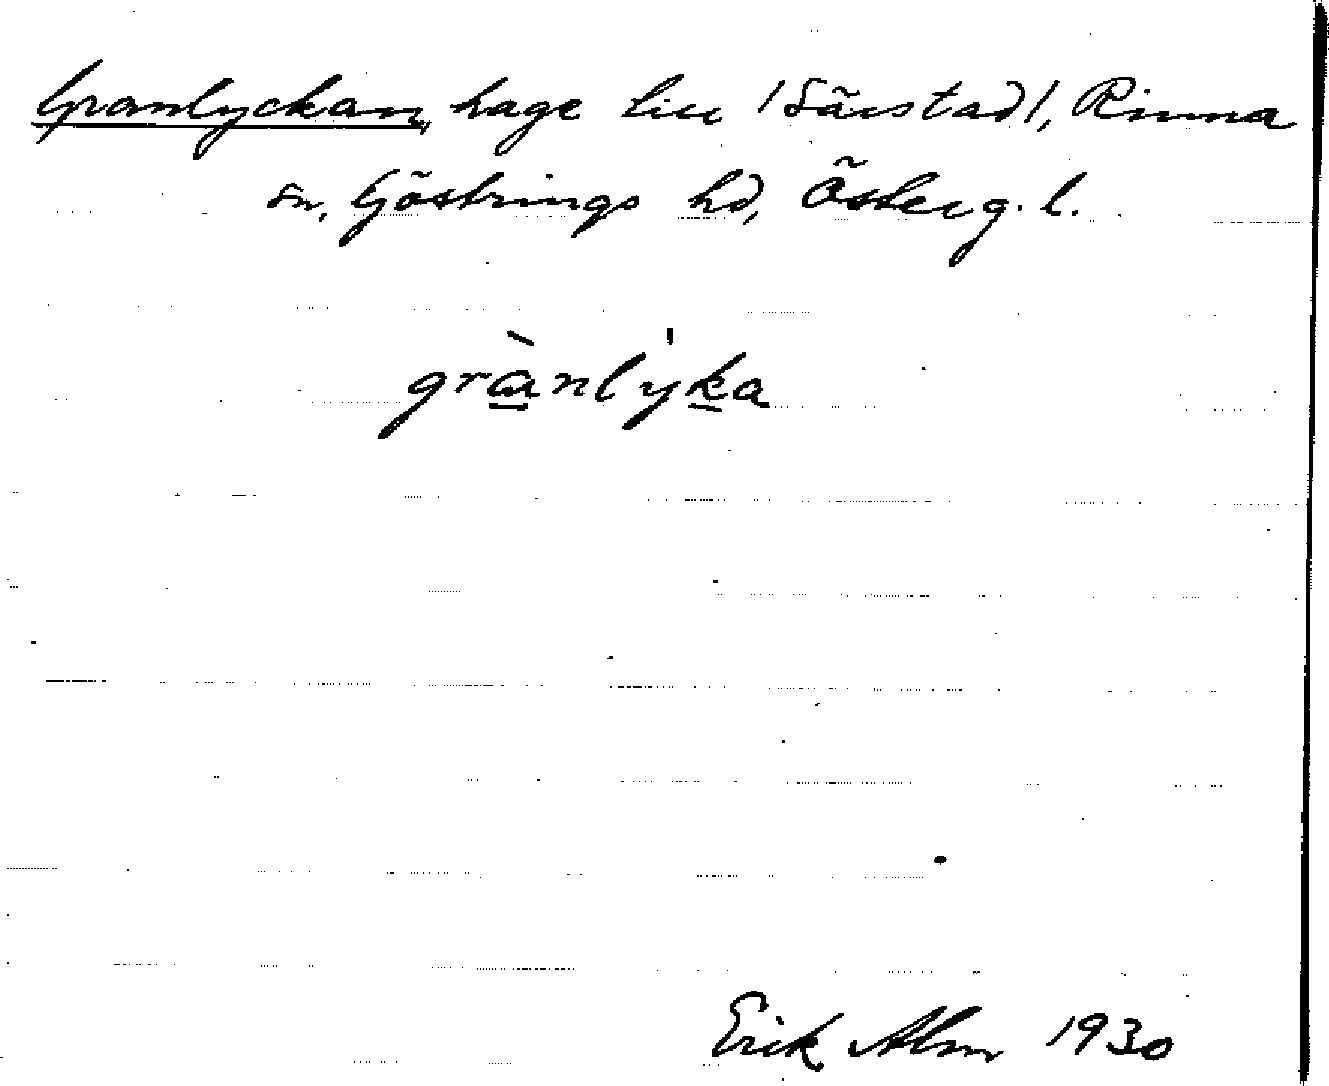 Granlyckan, hage till /Särstad/, Rinna
sn, Göstrings hd, Österg. l.
grànlýka
Erik Alm 1930